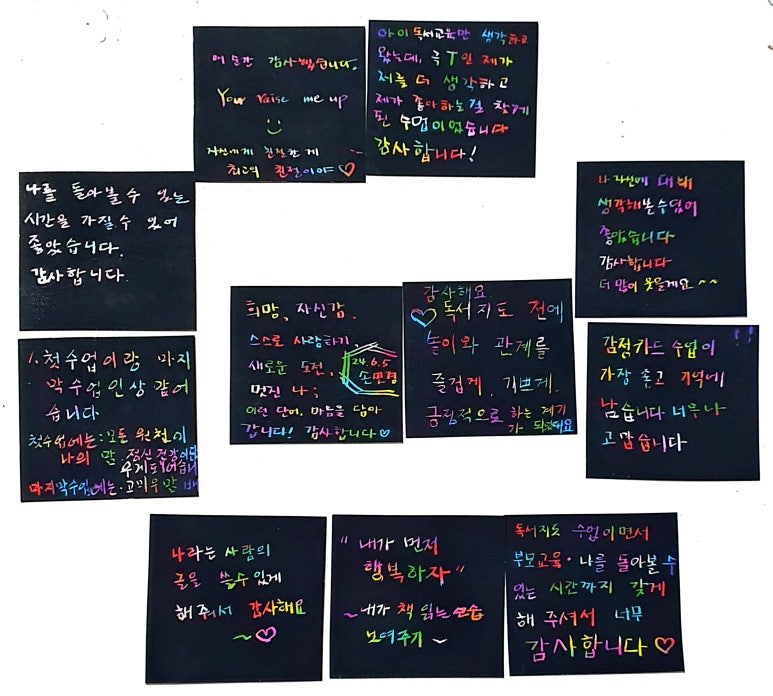 매 순간 감사했습니다.
You raise me up
자신에게 친절한 게
최고의 친절이야
아이 독서교육만 생각하고
왔는데, 극 T인 제가
저를 더 생각하고
제가 좋아하는걸 찾게
된 수업이었습니다
감사합니다!
나를 돌아볼 수 있는
시간을 가질 수 있어
좋았습니다.
감사합니다.
나 자신에 대해
생각해본수업이
좋았습니다
감사합니다
더 많이 웃을게요 ~~
희망, 자신감.
스스로 사랑하기.
새로운 도전,
멋진 나;
이런 단어, 마음을 담아
갑니다! 감사합니다♡
24.6.5
감사해요
♡독서지도 전에
놀이와 관계를
즐겁게, 기쁘게.
긍정적으로 하는 계기
가 되었어요
1. 첫수업이랑 마지
막수업인상 깊어
습니다
첫수업에는:모든 원인이
나의 맘, 정신 건강이
마지막수업에는.
감정카드 수업이 !!
가장 좋고 기억에
남습니다 너무나
고맙습니다
나라는 사람의
글을 쓸수있게
해 주셔서 감사해요
~♡
"내가 먼저
행복하자"
~내가 책 읽는 모습
보여주기~
독서지도 수업이면서
부모교육·나를 돌아볼 수
있는 시간까지 갖게
해 주셔서 너무
감사합니다♡